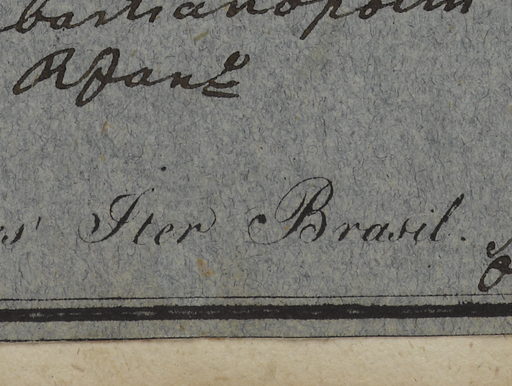 bastianopolin
RJan.º
s' Iter Brasil.